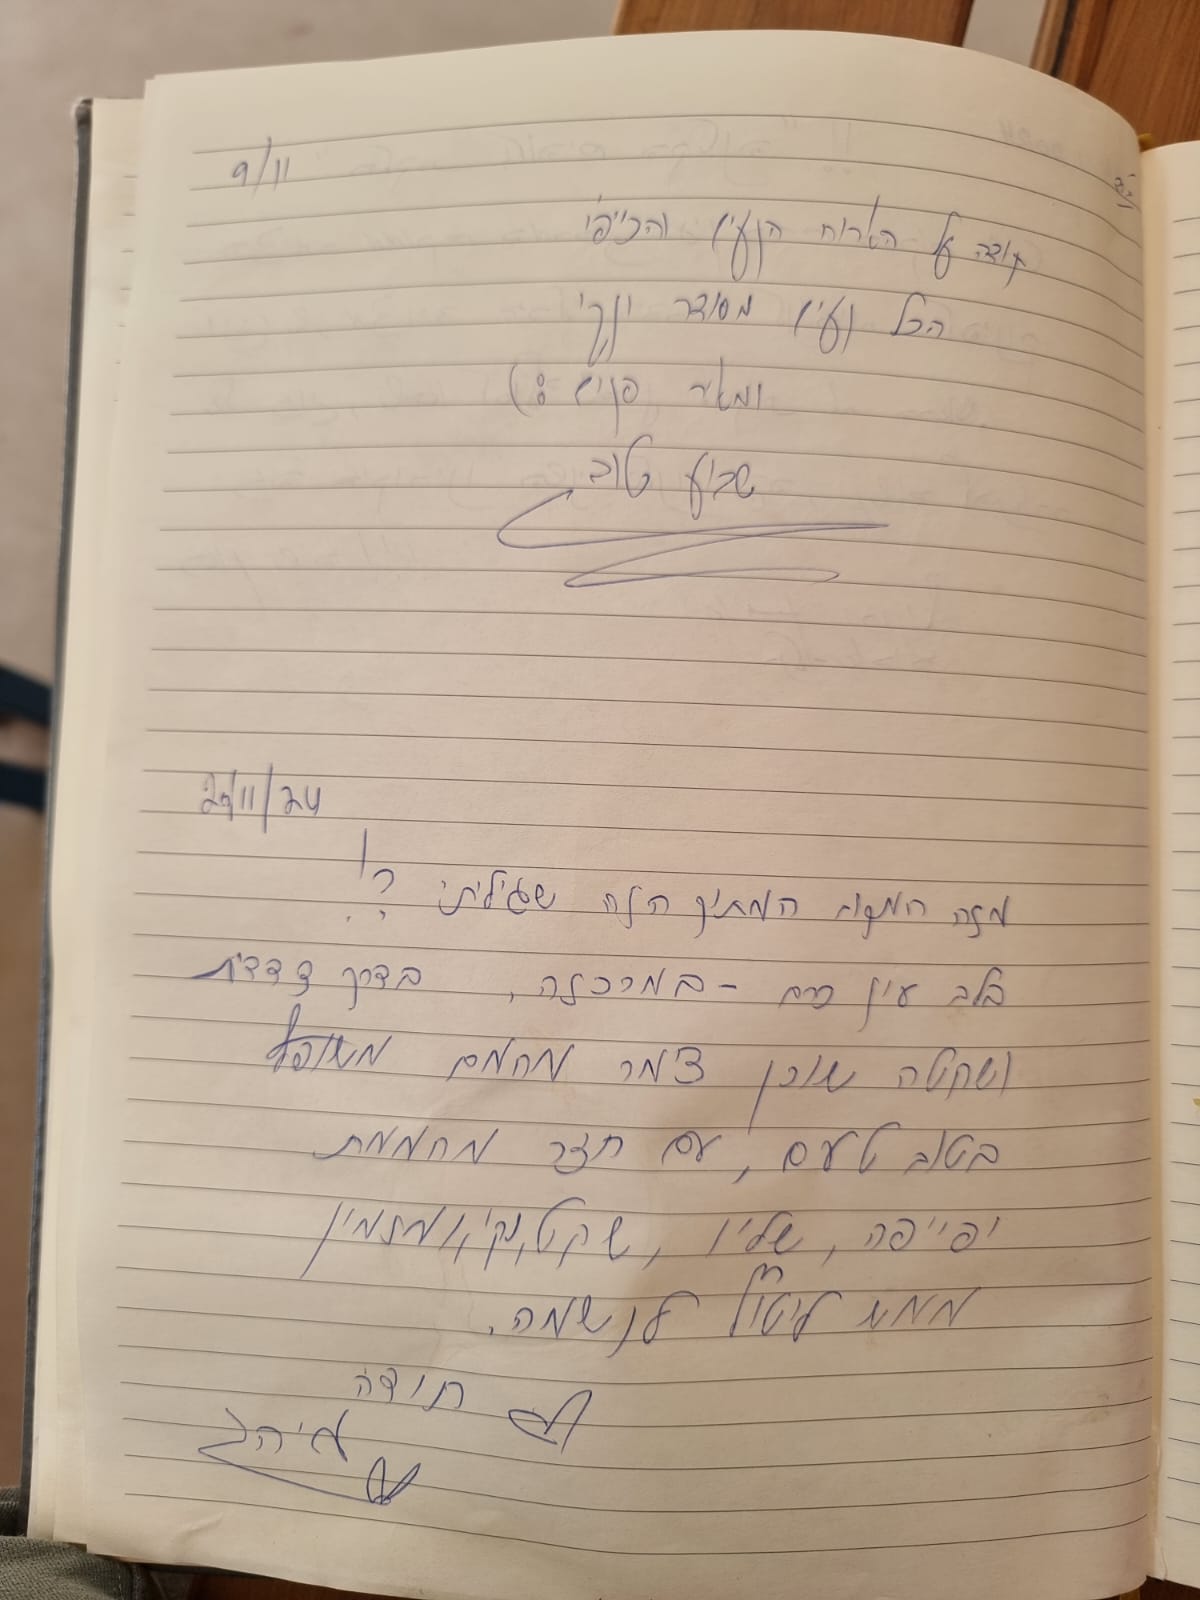 9/11
תודה על האירוח הנעים והכייפי
הכל נעים מסודר ונקי
ומאיר פנים :)
שבוע טוב
20/11/24
מזה המקום המתוק הזה שגיליתי ?!
בלב עין כרם - במרכזה, בדרך צדדית
ושקטה שוכן צימר מחמם
בטוב טעם, עם חצר מחממת
יפייפה, שליו, שקט, נקי, ומזמין
ממש לנשמה.
תודה